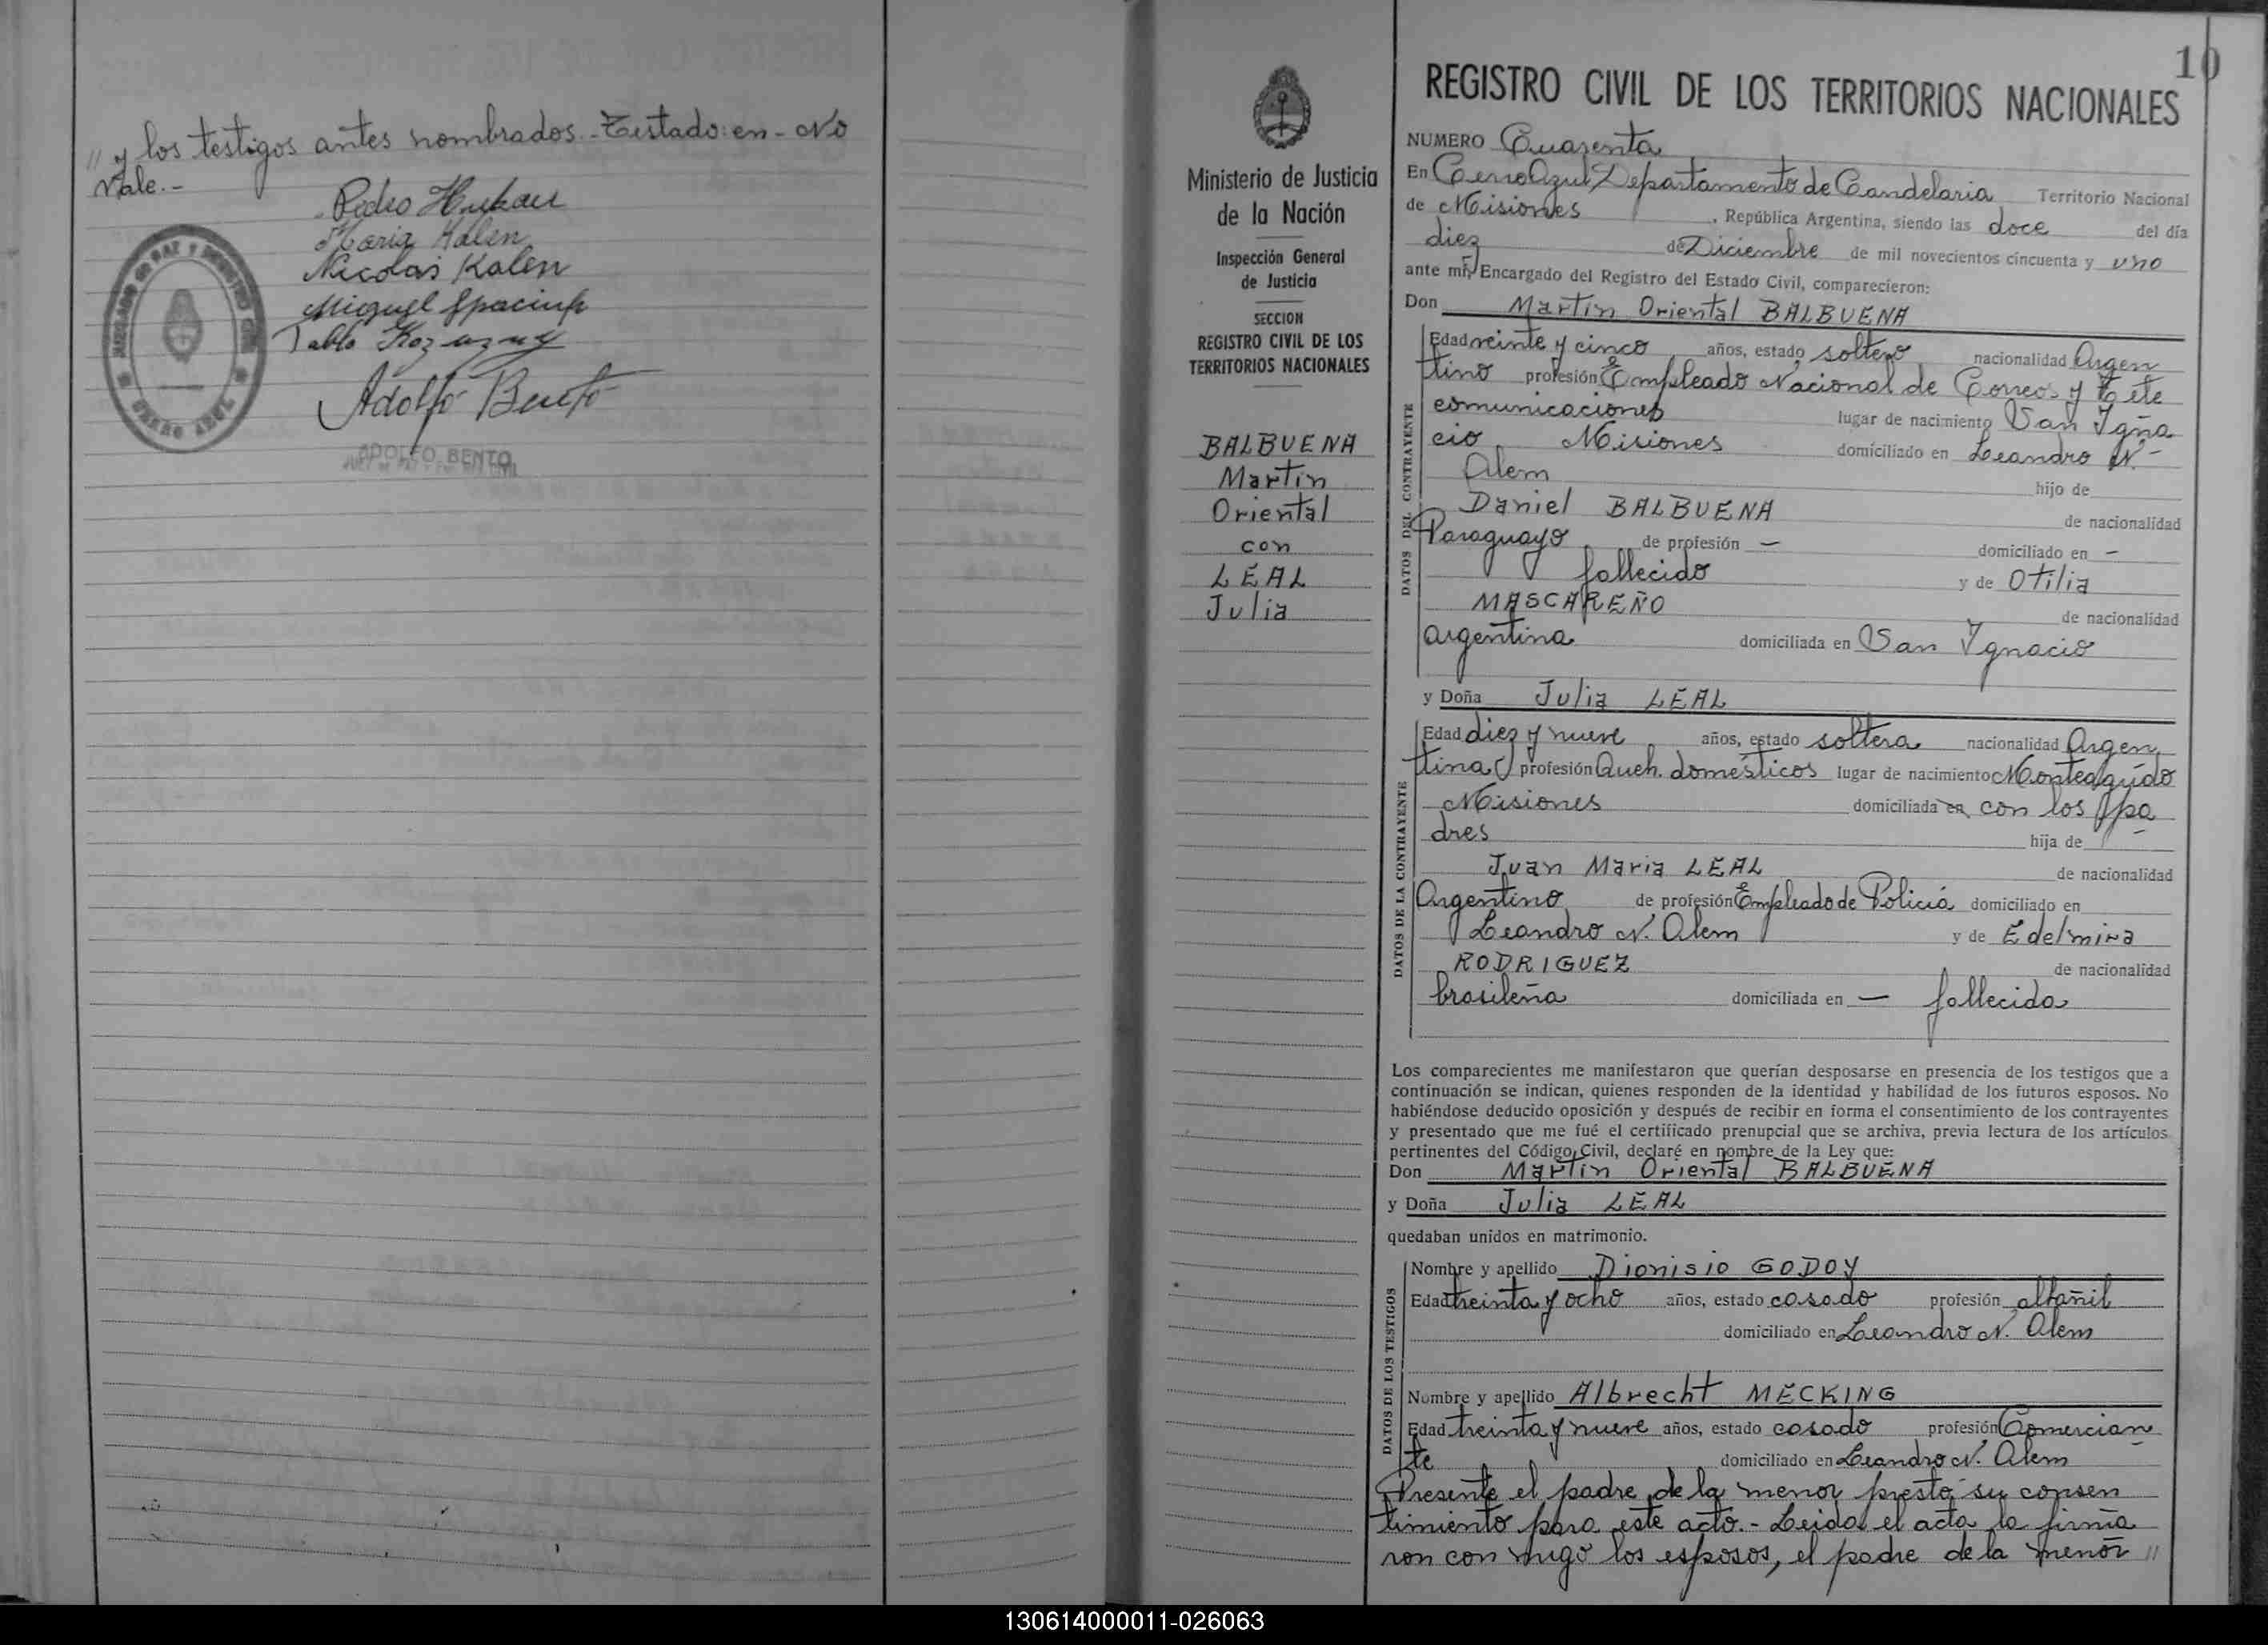 // y los testigos antes nombrados.- Testado: en - No
Vale.-
Pedro
Maria Kalen
Nicolas Kalen
Miguel
Pablo
Adolfo Bento
JUZGADO DE PAZ Y REGISTRO CIVIL
CERRO AZUL
ADOLFO BENTO
JUEZ DE PAZ Y ENC. REG. CIVIL
Ministerio de Justicia
de la Nación
Inspección General
de Justicia
SECCION
REGISTRO CIVIL DE LOS
TERRITORIOS NACIONALES
BALBUENA
Martin
Oriental
con
LEAL
Julia
10
REGISTRO CIVIL DE LOS TERRITORIOS NACIONALES
NUMERO Cuarenta
En Cerro Azul Departamento de Candelaria Territorio Nacional
de Misiones , República Argentina, siendo las doce del día
diez de Diciembre de mil novecientos cincuenta y uno
ante mí, Encargado del Registro del Estado Civil, comparecieron:
Don Martin Oriental BALBUENA
DATOS DEL CONTRAYENTE
Edad veinte y cinco años, estado soltero nacionalidad Argen
tino profesión Empleado Nacional de Correos y Tele
comunicaciones lugar de nacimiento San Igna
cio Misiones domiciliado en Leandro N.
Alem hijo de
Daniel BALBUENA de nacionalidad
Paraguayo de profesión — domiciliado en —
fallecido y de Otilia
MASCAREÑO de nacionalidad
argentina domiciliada en San Ygnacio
y Doña Julia LEAL
DATOS DE LA CONTRAYENTE
Edad diez y nueve años, estado soltera nacionalidad Argen
tina profesión Queh. domésticos lugar de nacimiento Monteagudo
Misiones domiciliada en con los pa
dres hija de
Juan Maria LEAL de nacionalidad
Argentino de profesión Empleado de Policia domiciliado en
Leandro N. Alem y de Edelmira
RODRIGUEZ de nacionalidad
brasileña domiciliada en — fallecida
Los comparecientes me manifestaron que querían desposarse en presencia de los testigos que a
continuación se indican, quienes responden de la identidad y habilidad de los futuros esposos. No
habiéndose deducido oposición y después de recibir en forma el consentimiento de los contrayentes
y presentado que me fué el certificado prenupcial que se archiva, previa lectura de los artículos
pertinentes del Código Civil, declaré en nombre de la Ley que:
Don Martin Oriental BALBUENA
y Doña Julia LEAL
quedaban unidos en matrimonio.
DATOS DE LOS TESTIGOS
Nombre y apellido Dionisio GODOY
Edad treinta y ocho años, estado casado profesión albañil
domiciliado en Leandro N. Alem
Nombre y apellido Albrecht MECKING
Edad treinta y nueve años, estado casado profesión Comercian
te domiciliado en Leandro N. Alem
Presente el padre de la menor prestó su consen
timiento para este acto.- Leida el acta la firma
ron con migo los esposos, el padre de la menor //
130614000011-026063